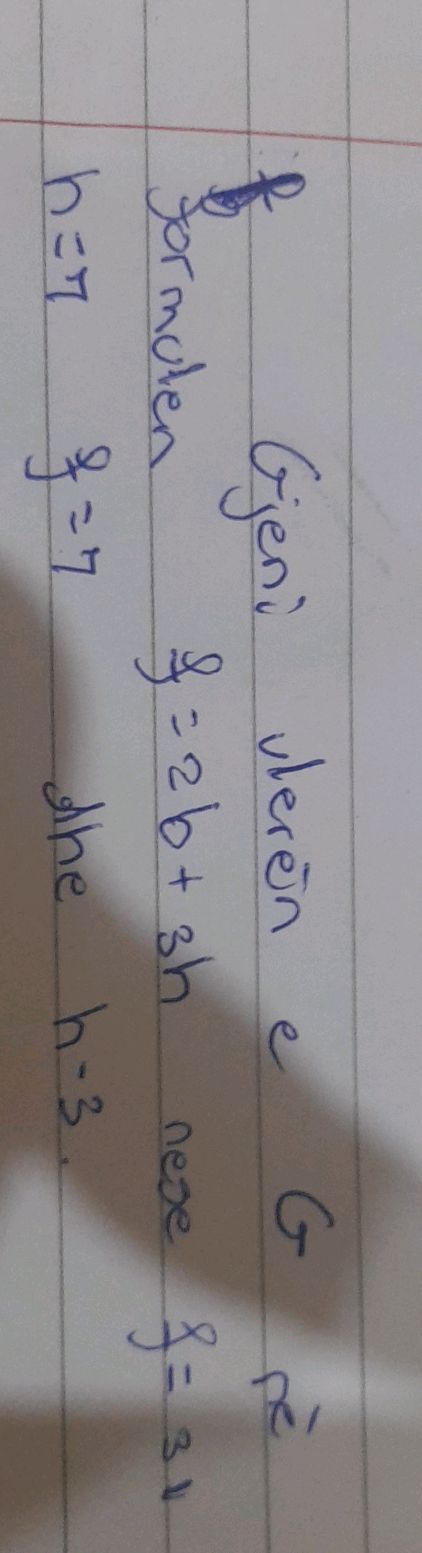 Gjeni vlerën e G në
formulen f = 2b + 3h nese f = 31
h = 7 f = 7 dhe h = 3.